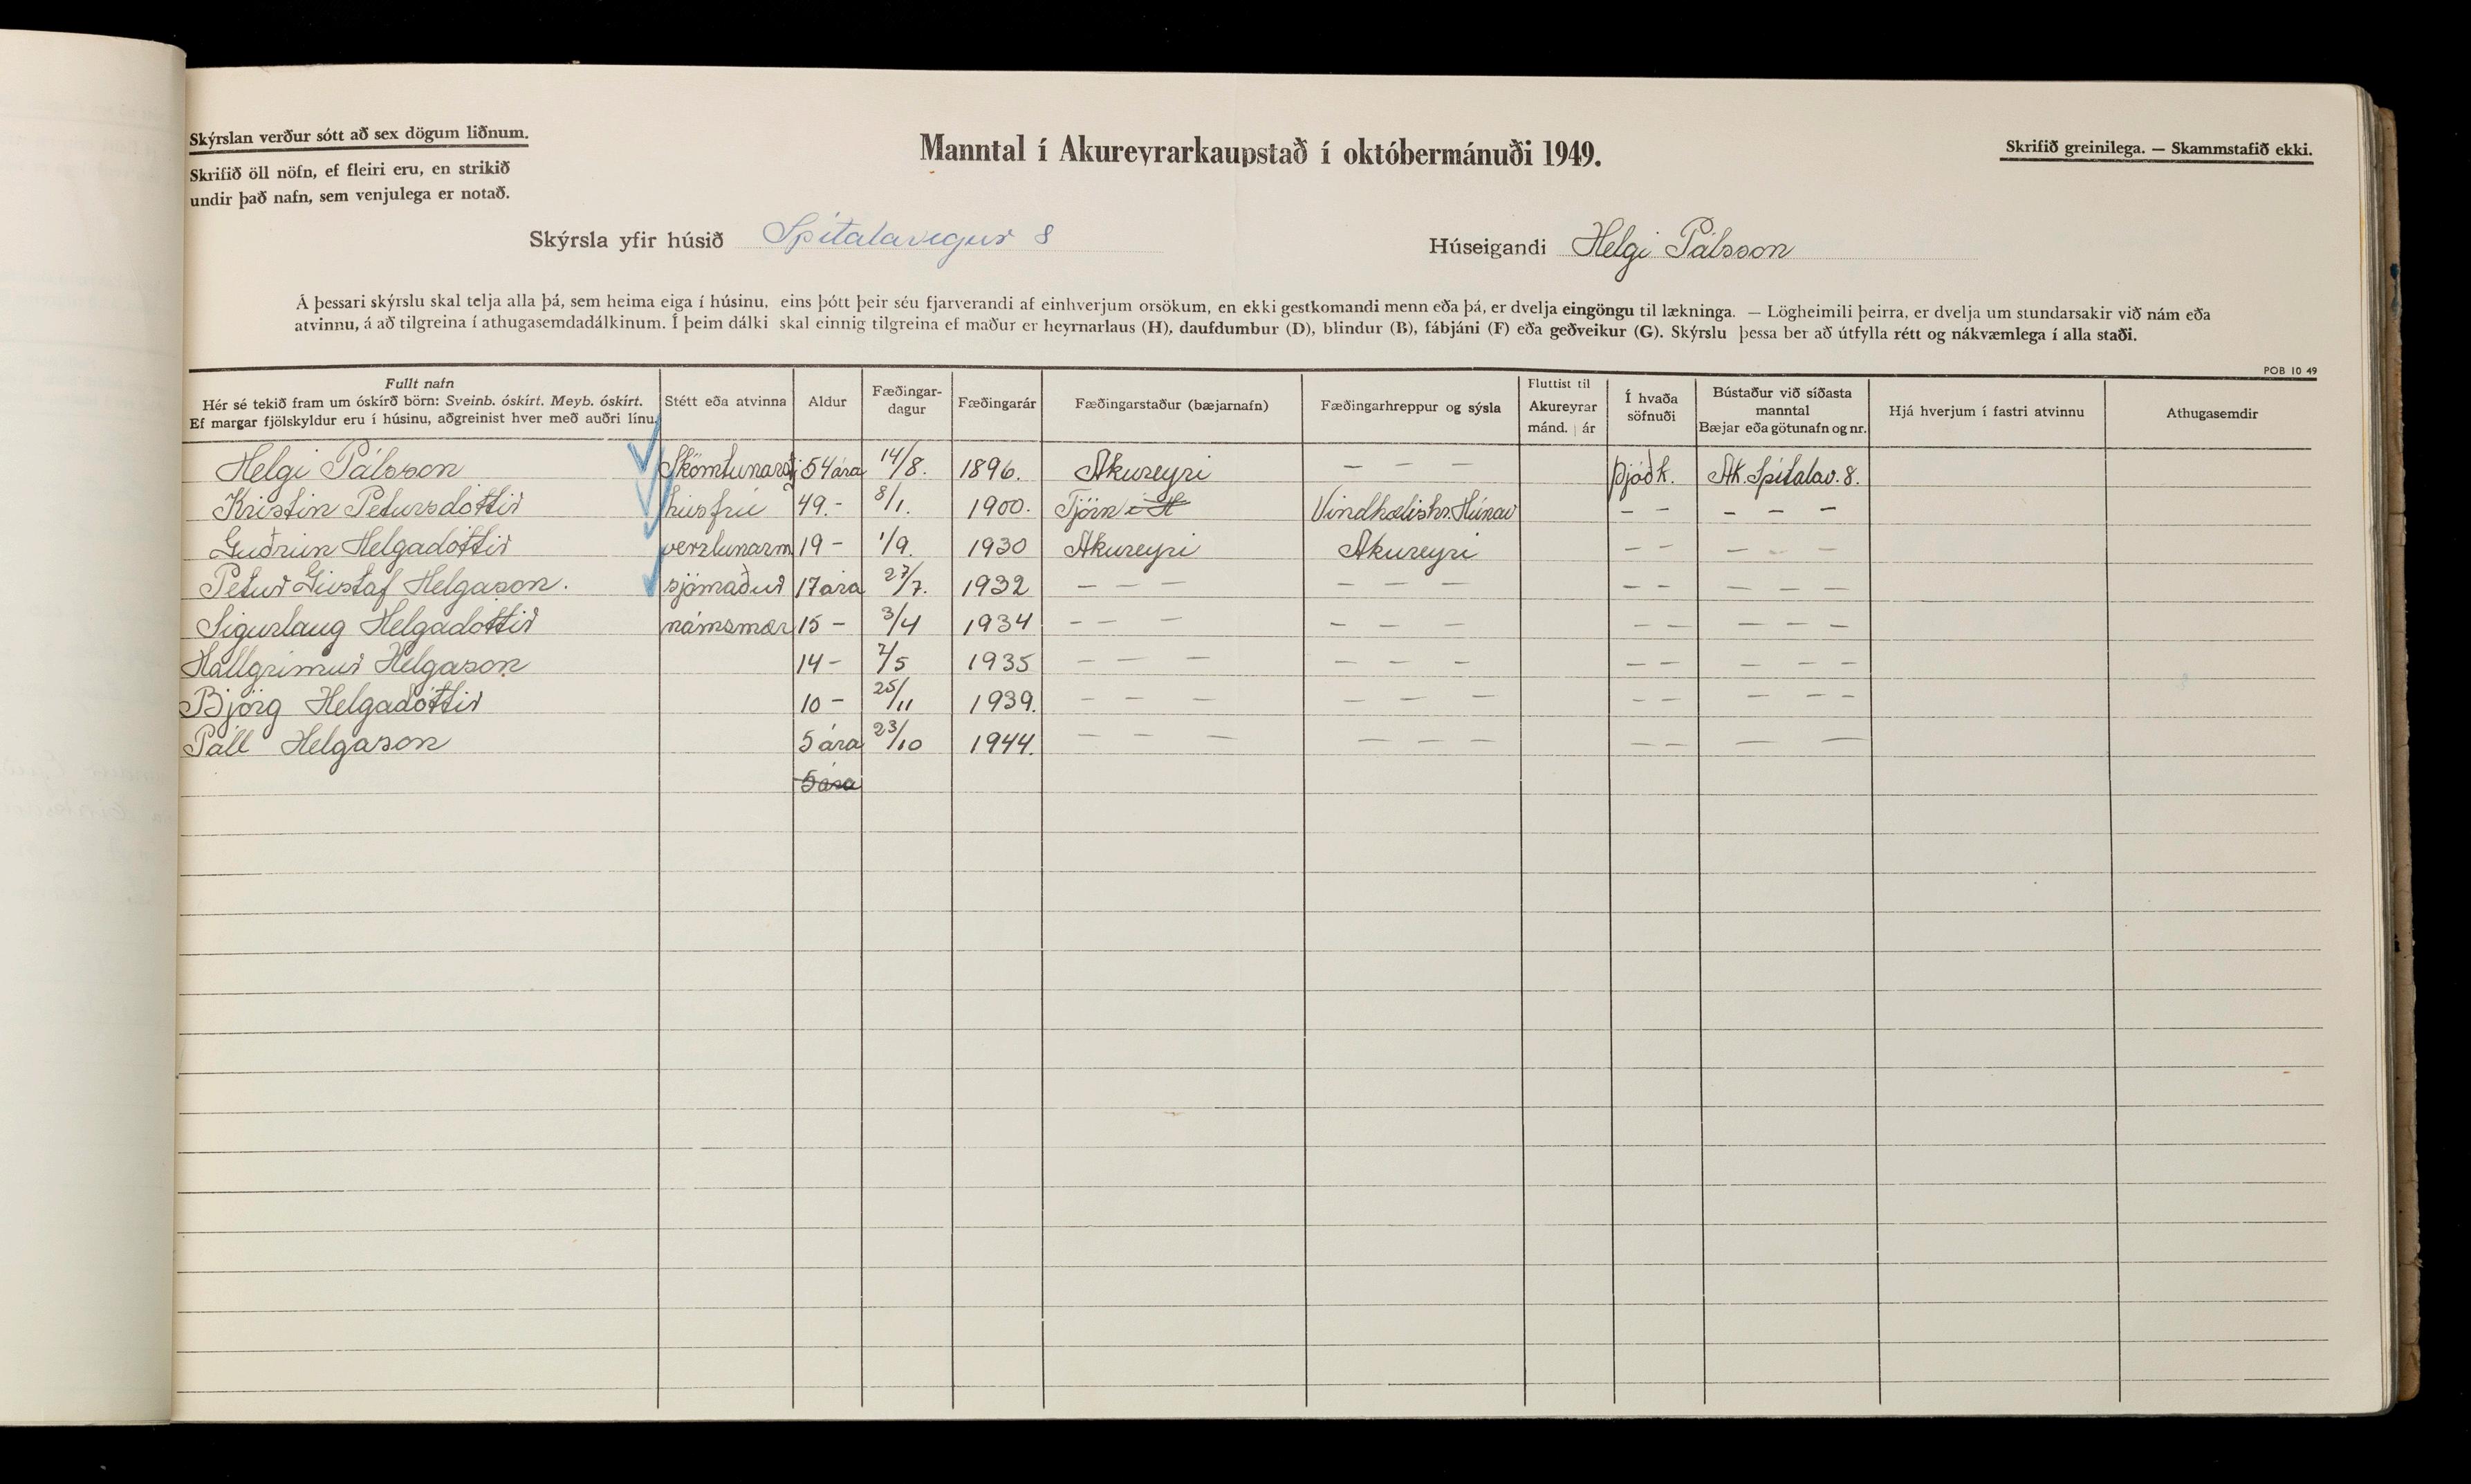 Skýrslan verður sótt að sex dögum liðnum.
Skrifið öll nöfn, ef fleiri eru, en strikið
undir það nafn, sem venjulega er notað.
Manntal í Akureyrarkaupstað í októbermánuði 1949.
Skrifið greinilega. — Skammstafið ekki.
Skýrsla yfir húsið Spítalavegur 8
Húseigandi Helgi Pálsson
Á þessari skýrslu skal telja alla þá, sem heima eiga í húsinu, eins þótt þeir séu fjarverandi af einhverjum orsökum, en ekki gestkomandi menn eða þá, er dvelja eingöngu til lækninga. — Lögheimili þeirra, er dvelja um stundarsakir við nám eða
atvinnu, á að tilgreina í athugasemdadálkinum. Í þeim dálki skal einnig tilgreina ef maður er heyrnarlaus (H), daufdumbur (D), blindur (B), fábjáni (F) eða geðveikur (G). Skýrslu þessa ber að útfylla rétt og nákvæmlega í alla staði.
POB 10 49
Fullt nafn
Hér sé tekið fram um óskírð börn: Sveinb. óskírt. Meyb. óskírt.
Ef margar fjölskyldur eru í húsinu, aðgreinist hver með auðri línu.
Stétt eða atvinna
Aldur
Fæðingar-
dagur
Fæðingarár
Fæðingarstaður (bæjarnafn)
Fæðingarhreppur og sýsla
Fluttist til
Akureyrar
mánd. | ár
Í hvaða
söfnuði
Bústaður við síðasta
manntal
Bæjar eða götunafn og nr.
Hjá hverjum í fastri atvinnu
Athugasemdir
Helgi Pálsson Skömtunarstj 54 ára 14/8. 1896. Akureyri — — — Þjóðk. Ak. Spítalav. 8.
Kristin Petursdóttir húsfrú 49.- 8/1. 1900. Tjörn í H Vindhælishr. Húnav — — — — —
Guðrún Helgadóttir verzlunarm 19 - 1/9. 1930 Akureyri Akureyri — — — — —
Petur Gústaf Helgason. sjómaður 17 ára 27/7. 1932 — — — — — — — — — — —
Sigurlaug Helgadóttir námsmær 15 - 3/4 1934 — — — — — — — — — — —
Hallgrimur Helgason 14 - 7/5 1935 — — — — — — — — — — —
Björg Helgadóttir 10 - 25/11 1939. — — — — — — — — — — —
Páll Helgason 5 ára 23/10 1944. — — — — — — — — — —
5 ára